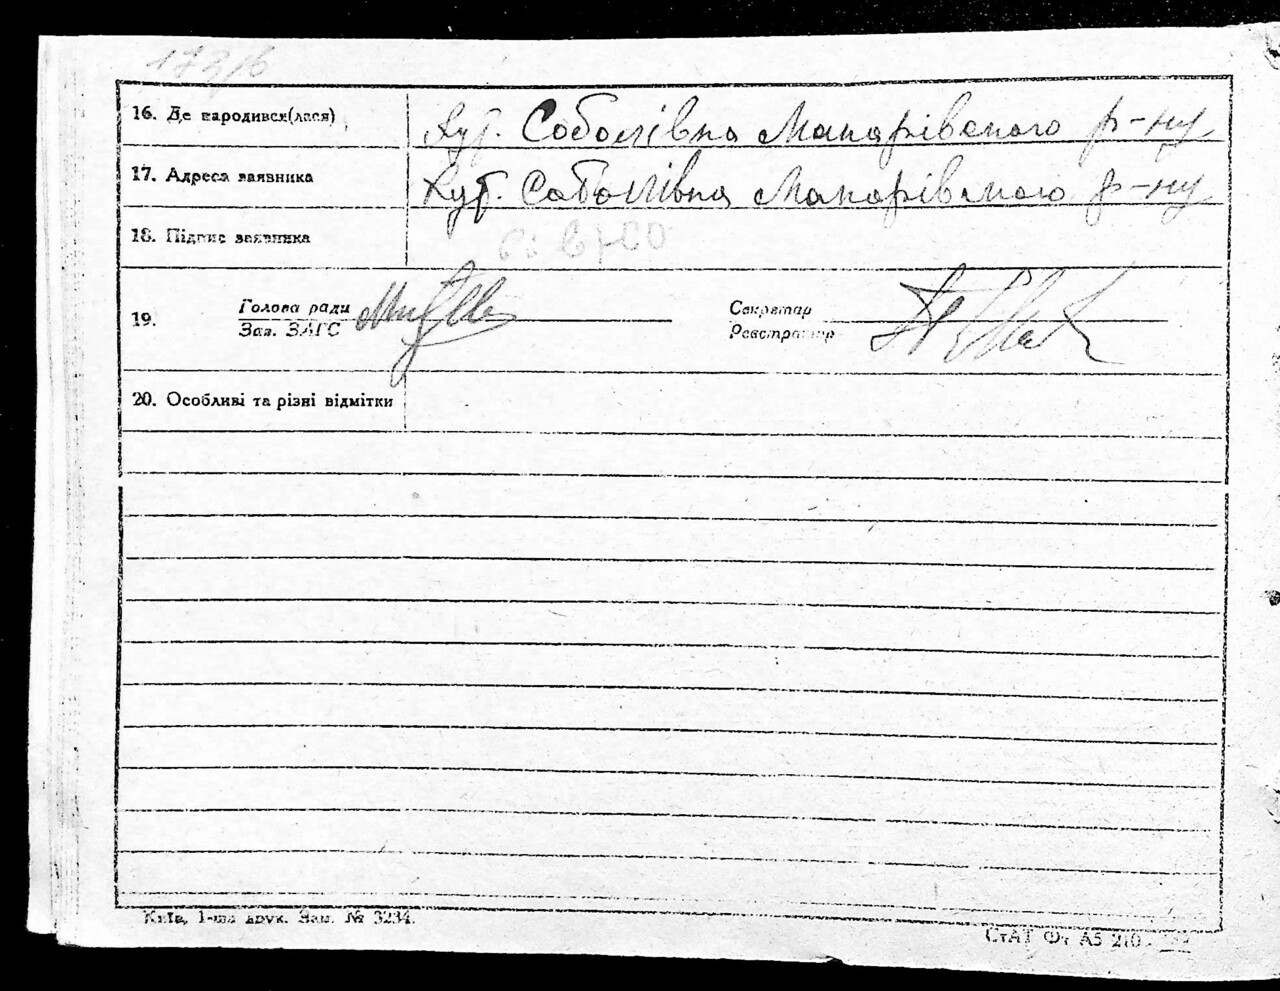 16. Де народився(лася) Хут. Соболівка Макарівського р-ну
17. Адреса заявника Хут. Соболівка Макарівського р-ну
18. Підпис заявника
19. Голова ради Секретар
Зав. ЗАГС Реєстратор
20. Особливі та різні відмітки
Київ, 1-ша друк. Зам. № 3234.
СтАТ Ф. А5 210